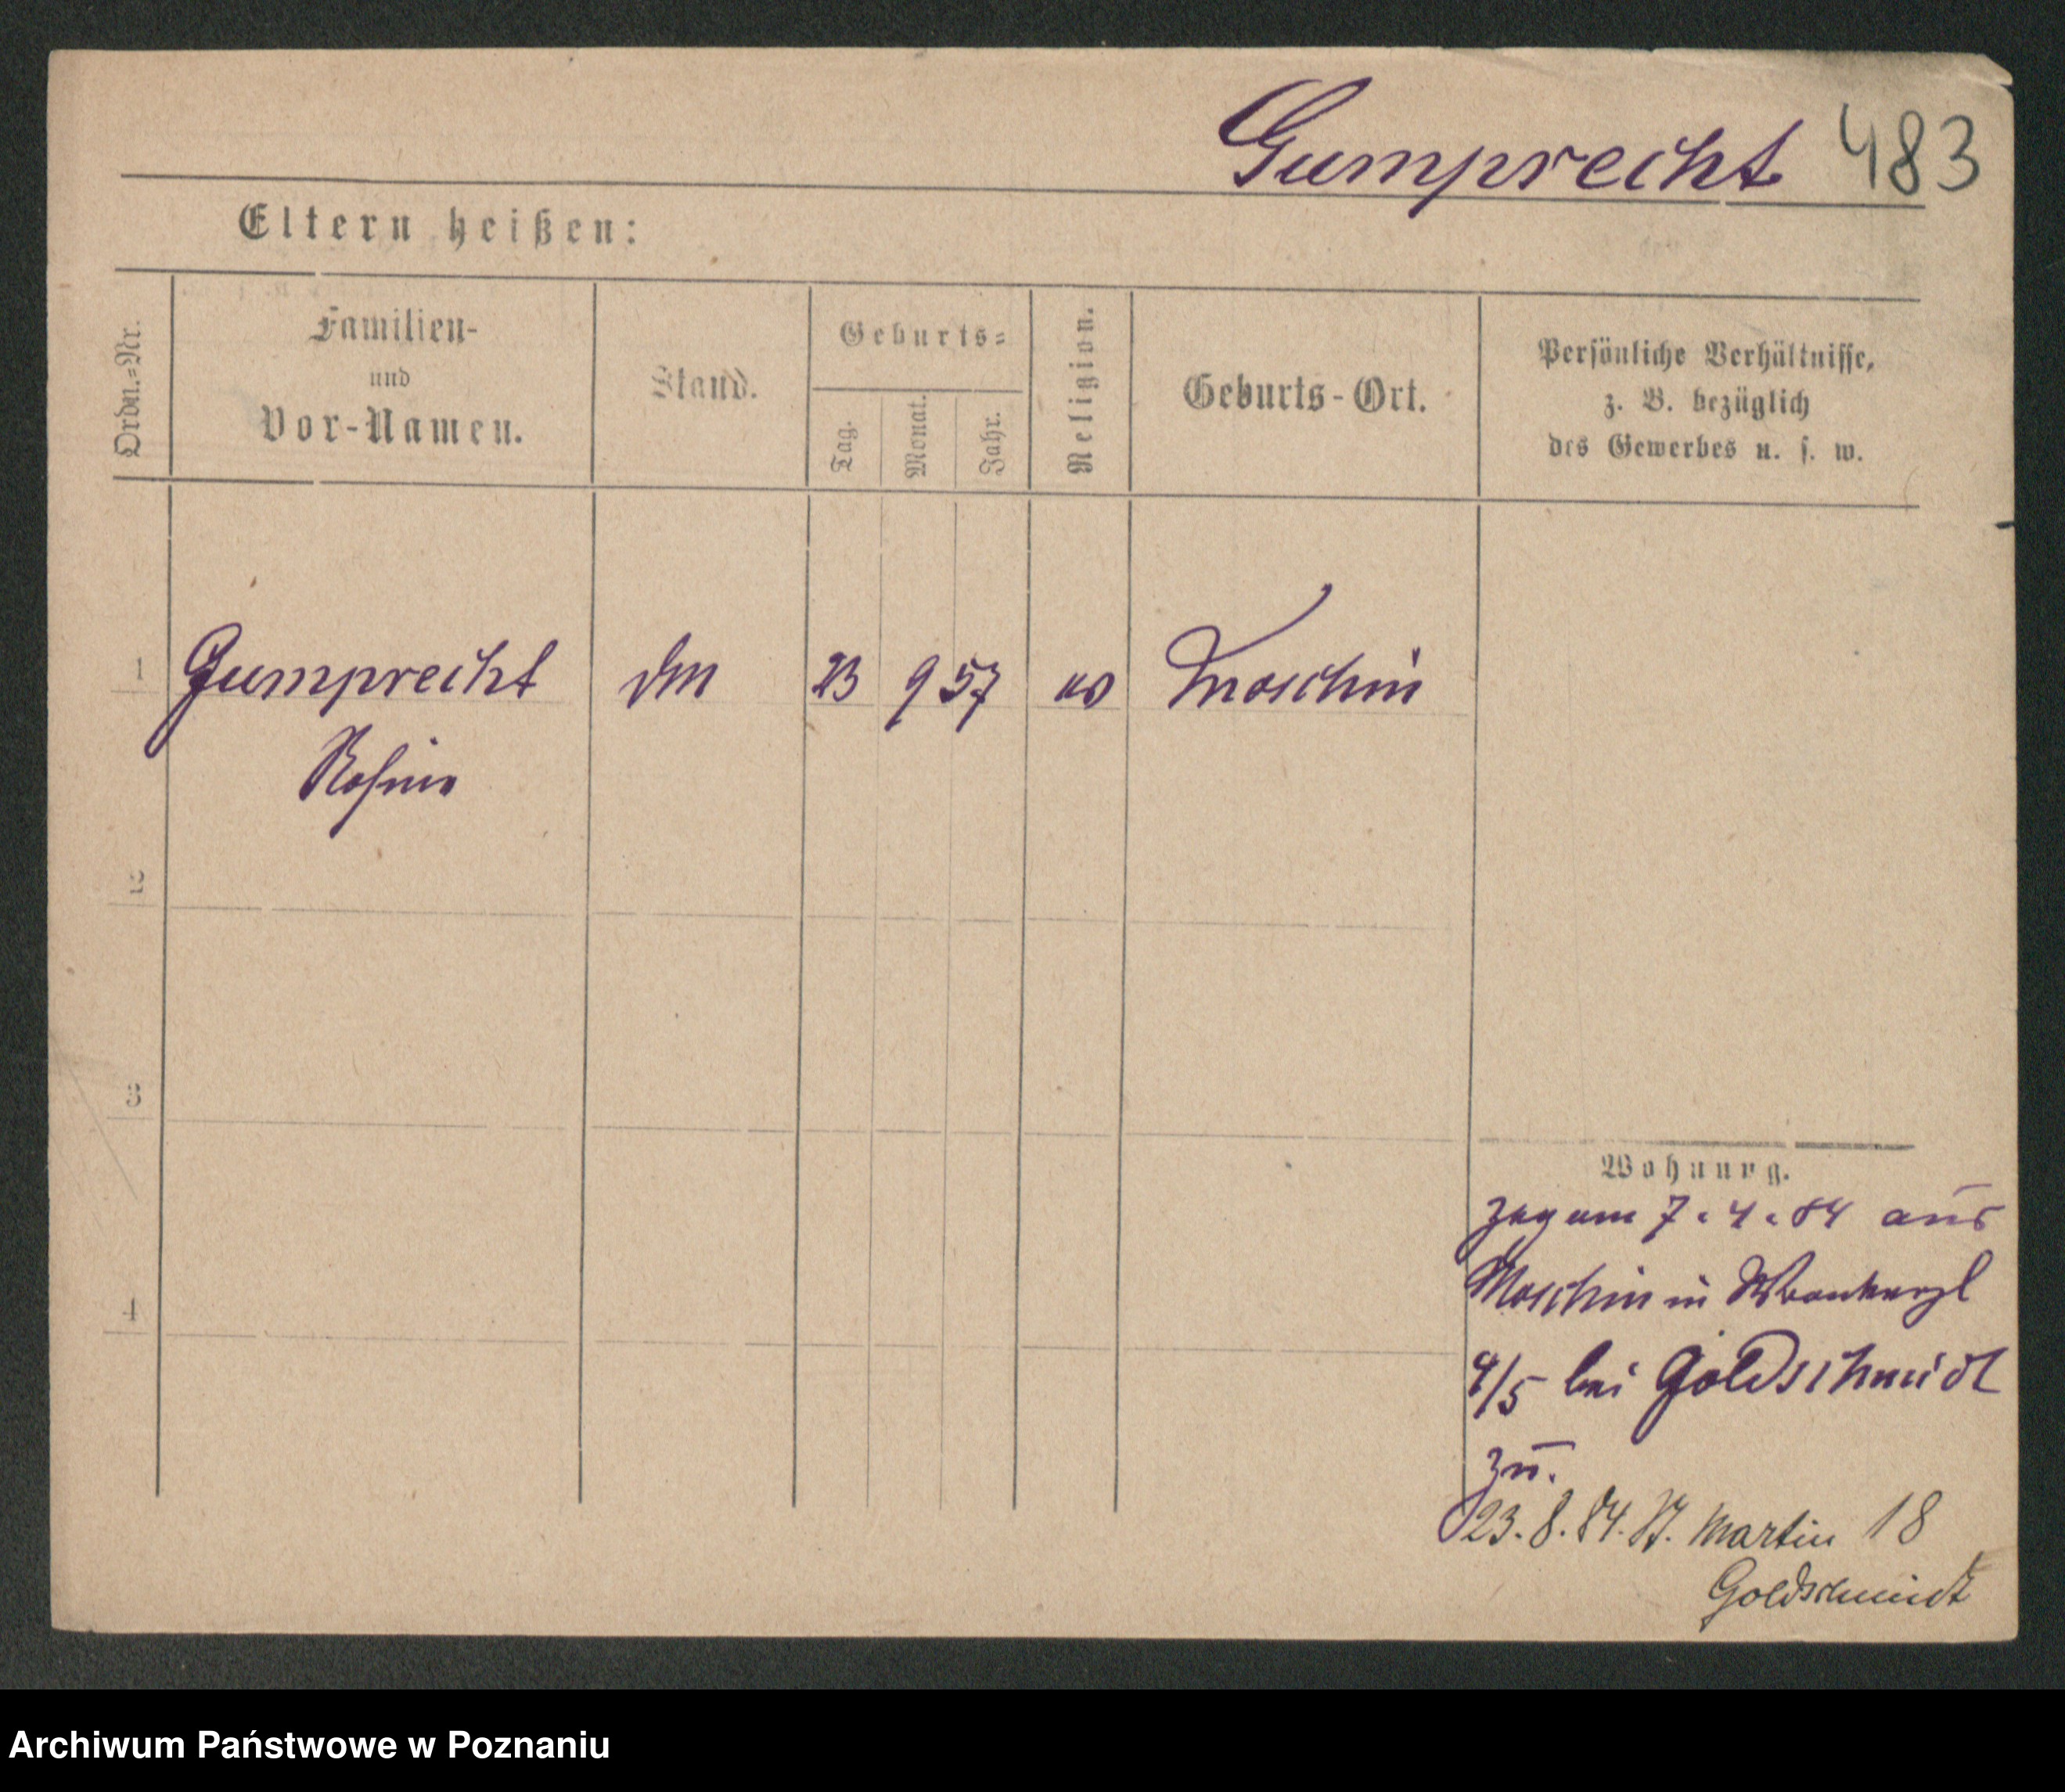 Gumprecht 483
Eltern heißen:
Ordn.=Nr.
Familien-
und
Vor-Namen.
Stand.
Geburts=
Tag.
Monat.
Jahr.
Religion.
Geburts-Ort.
Persönliche Verhältnisse,
z. B. bezüglich
des Gewerbes u. s. w.
1 Gumprecht 23 9 57 Moschin
Rosina
2
3
4
Wohnung.
zog am 7.4.84 aus
Moschin in
4/5 bei Goldschmidt
zu.
23.8.84. St. Martin 18
Goldschmidt
Archiwum Państwowe w Poznaniu